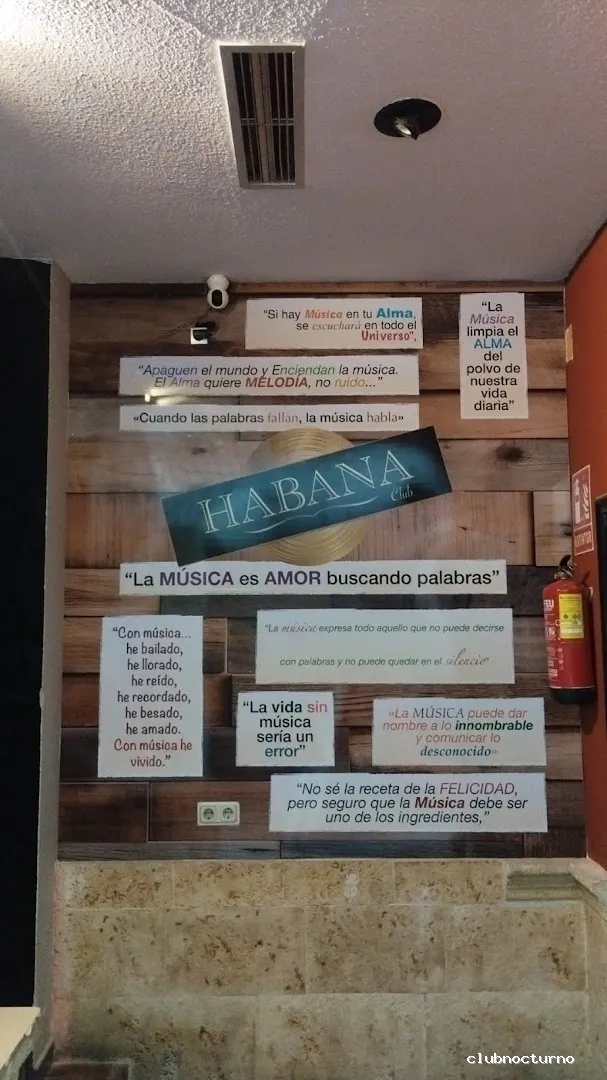 “Si hay Música en tu Alma,
se escuchará en todo el
Universo”.
“La
Música
limpia el
ALMA
del
polvo de
nuestra
vida
diaria”
“Apaguen el mundo y Enciendan la música.
El Alma quiere MELODÍA, no ruido...”
«Cuando las palabras fallan, la música habla»
HABANA
Club
“La MÚSICA es AMOR buscando palabras”
“Con música...
he bailado,
he llorado,
he reído,
he recordado,
he besado,
he amado.
Con música he
vivido.”
“La música expresa todo aquello que no puede decirse
con palabras y no puede quedar en el silencio”
“La vida sin
música
sería un
error”
«La MÚSICA puede dar
nombre a lo innombrable
y comunicar lo
desconocido»
“No sé la receta de la FELICIDAD,
pero seguro que la Música debe ser
uno de los ingredientes,”
EXTINTOR
clubnocturno